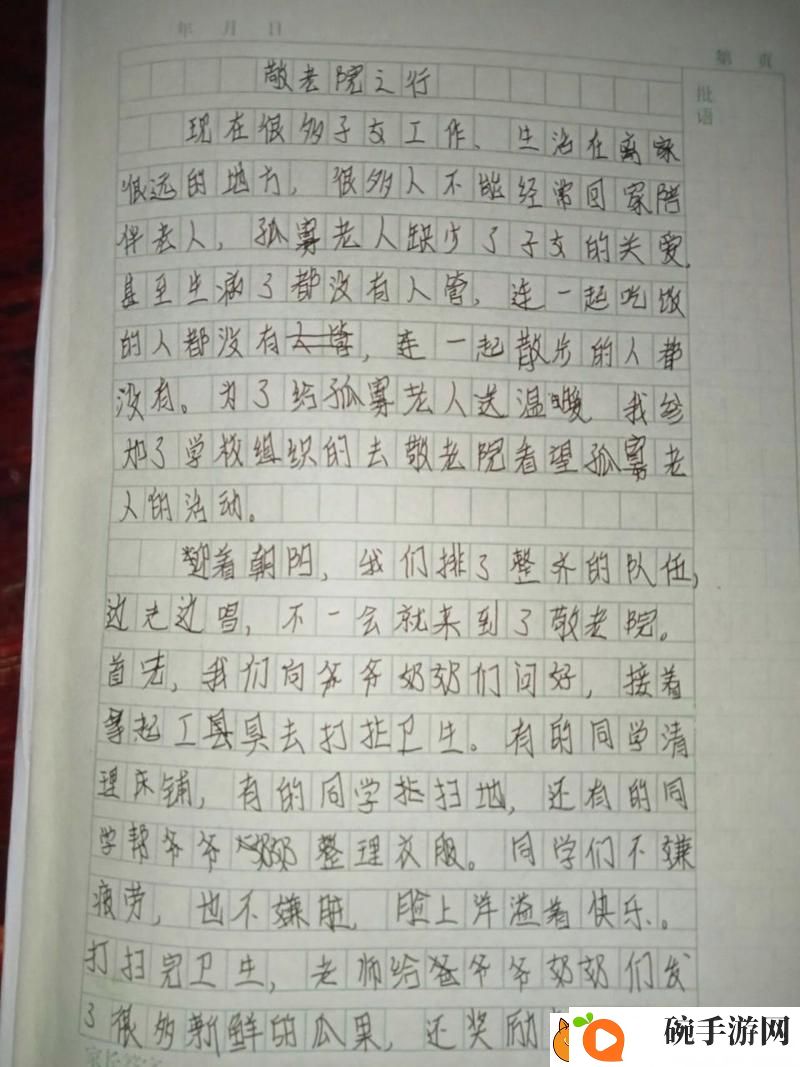 年 月 日
第 页
批语
敬老院之行
现在很多子女工作、生活在离家
很远的地方，很多人不能经常回家陪
伴老人，孤寡老人缺少了子女的关爱，
甚至生病了都没有人管，连一起吃饭
的人都没有人管，连一起散步的人都
没有。为了给孤寡老人送温暖 我参
加了学校组织的去敬老院看望孤寡老
人的活动。
迎着朝阳，我们排了整齐的队伍，
边走边唱，不一会就来到了敬老院。
首先，我们向爷爷奶奶们问好，接着
拿起工具具去打扫卫生。有的同学清
理床铺，有的同学扫地，还有的同
学帮爷爷奶奶整理衣服。同学们不嫌
疲劳，也不嫌脏，脸上洋溢着快乐。
打扫完卫生，老师给爷爷奶奶们发
了很多新鲜的瓜果，还奖励
碗手游网
家长签字